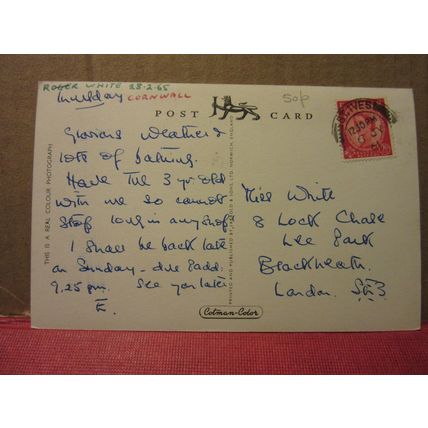 ROGER WHITE 28-2-65
CORNWALL
50p
Thursday
POST CARD
Glorious weather &
lots of bathing.
Have the 3 yr old
with me so cannot
stop long in any shop
I shall be back late
on Sunday - due Padd.
9.25 pm. See you later
E.
Miss White
8 Lock Chase
Lee Park
Blackheath.
London. SE3
THIS IS A REAL COLOUR PHOTOGRAPH
PRINTED AND PUBLISHED BY JARROLD & SONS LTD. NORWICH, ENGLAND
Cotman-Color
ST. IVES
12:30 PM